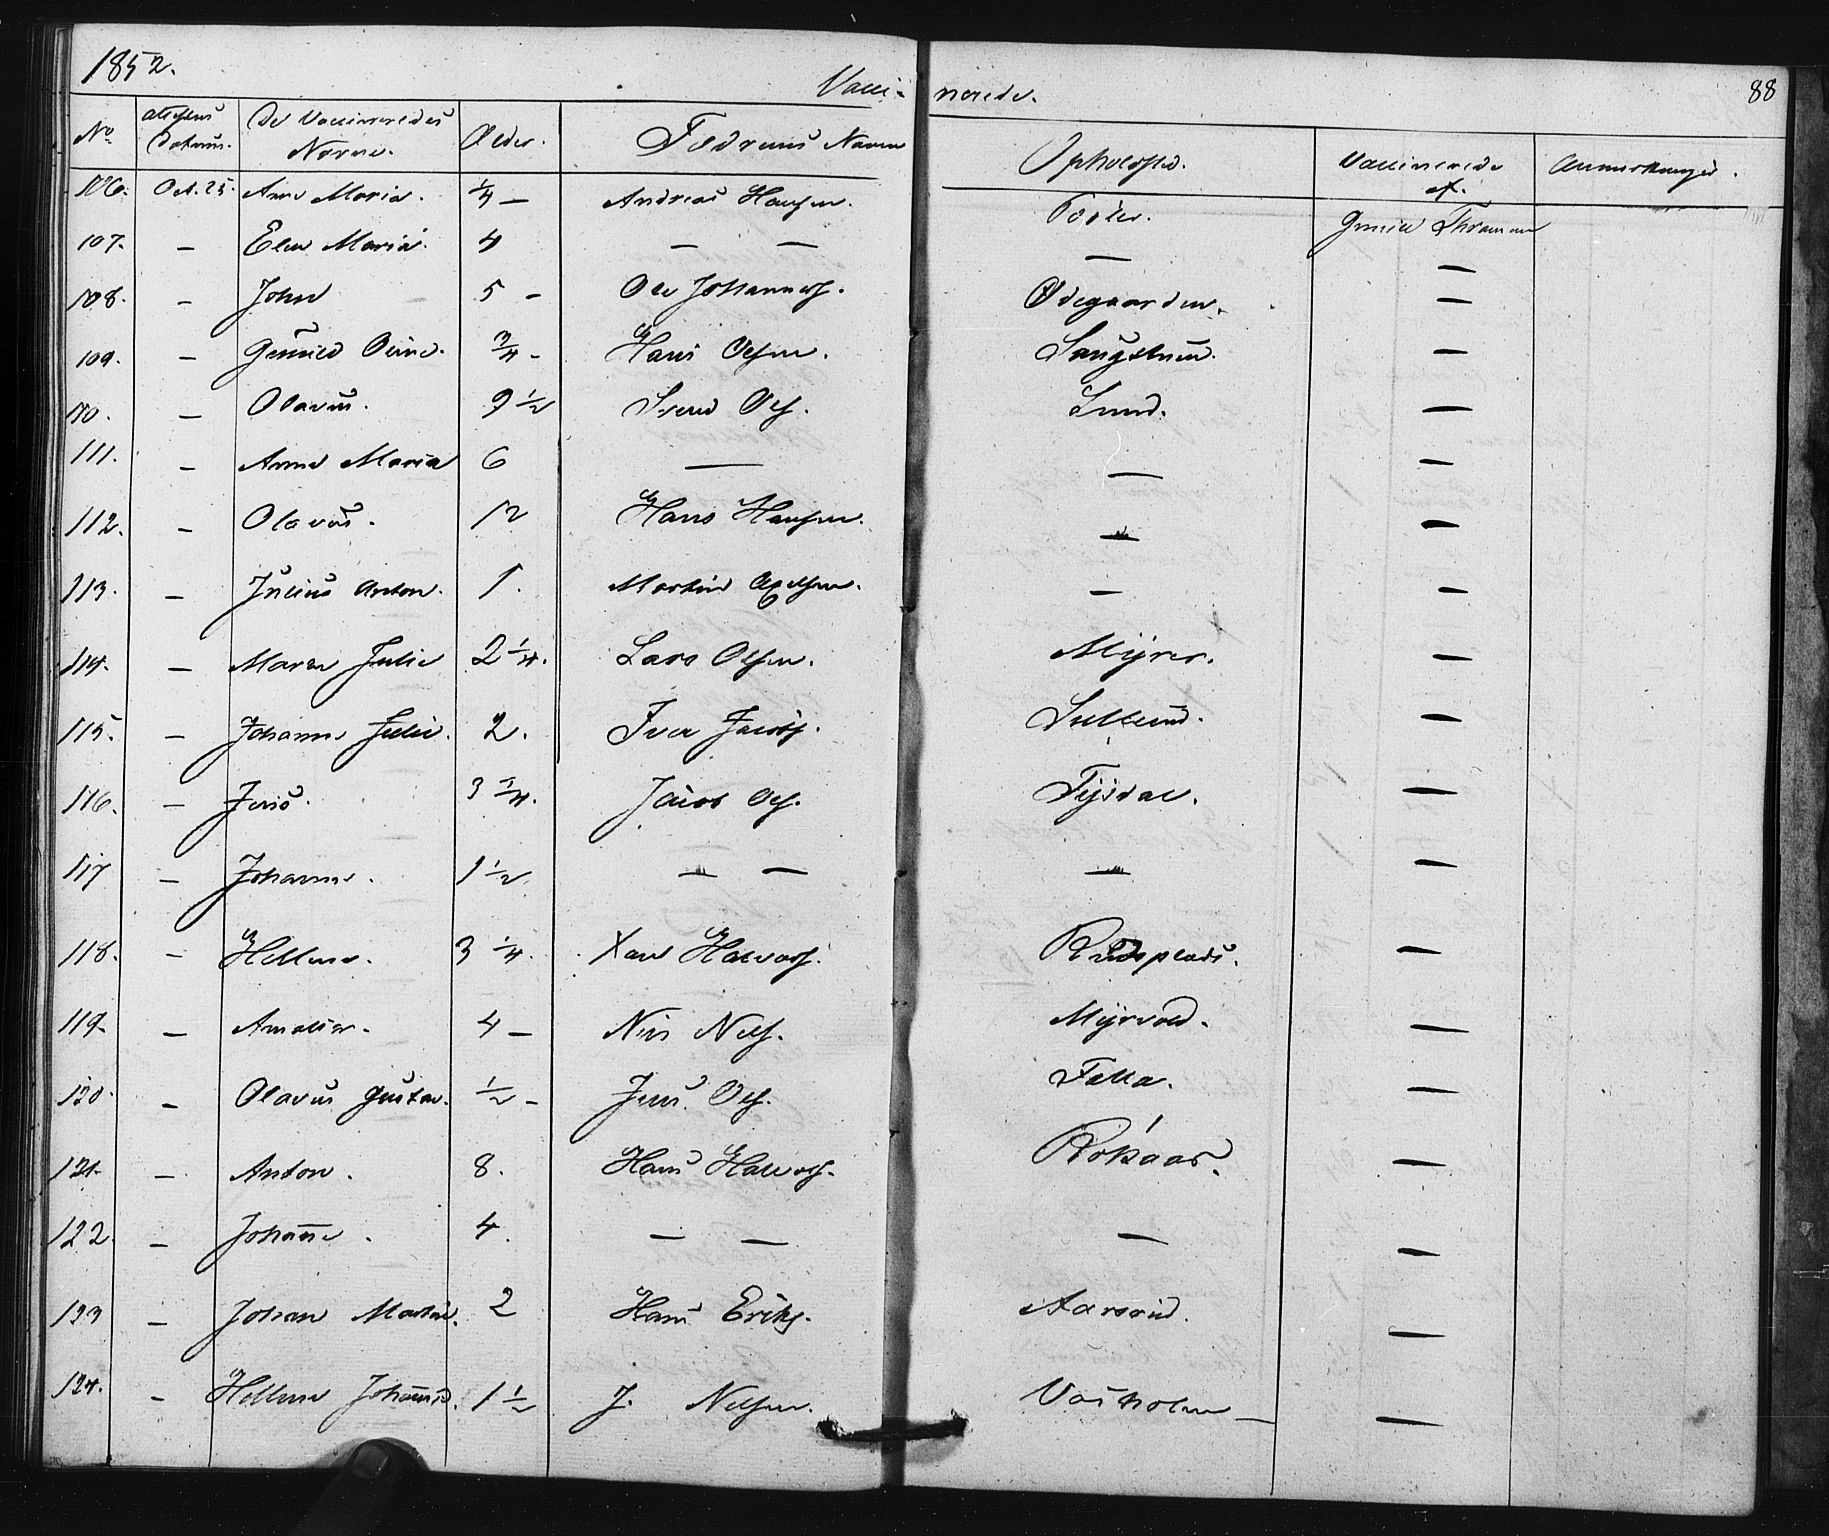 1852.
Vacci- nerede. 88
No Datum. De Vaccineredes Navne. Alder. Fædrenes Navne Opholdsted. Vaccinerede af. Anmerkninger.
106. Oct. 25. Anne Maria. 1/4 — Andreas Hansen.
107. — Elen Maria. 4 — — — —
108. — John 5 — Ole Johannes. Ødegaarden. —
109. — Gunild Oline. 3/4 — Hans Olsen. Langstuen. —
110. — Olavus. 9 1/2 Svend Ols. Lund. —
111. — Anne Maria 6 — — —
112. — Olavus. 12 Hans Hansen. — —
113. — Julius Anton. 1. Martin Axelsen. — —
114. — Maren Julie 2 1/4. Lars Olsen. Myrer. —
115. — Johanne Julie. 2. Iver Jacobs. —
116. — Jens. 3 1/4. Jacob Ols. Tysdal. —
117 — Johanne. 1 1/2 — — — —
118. — Hellene. 3 1/4. Halvors. Rudsplads. —
119. — Amalie. 4 — Nils Nels. Myrvold. —
120. — Olavus Gustav. 1/2 — Jens Ols. Falla. —
121. — Anton. 8. Hans Halvors. —
122. — Johanne. 4. — — — —
123 — Johan Martin. 2 Hans Eriks. Aarsrud. —
124. — Hellene 1 1/2 J. Nelsen. Vasholm — —